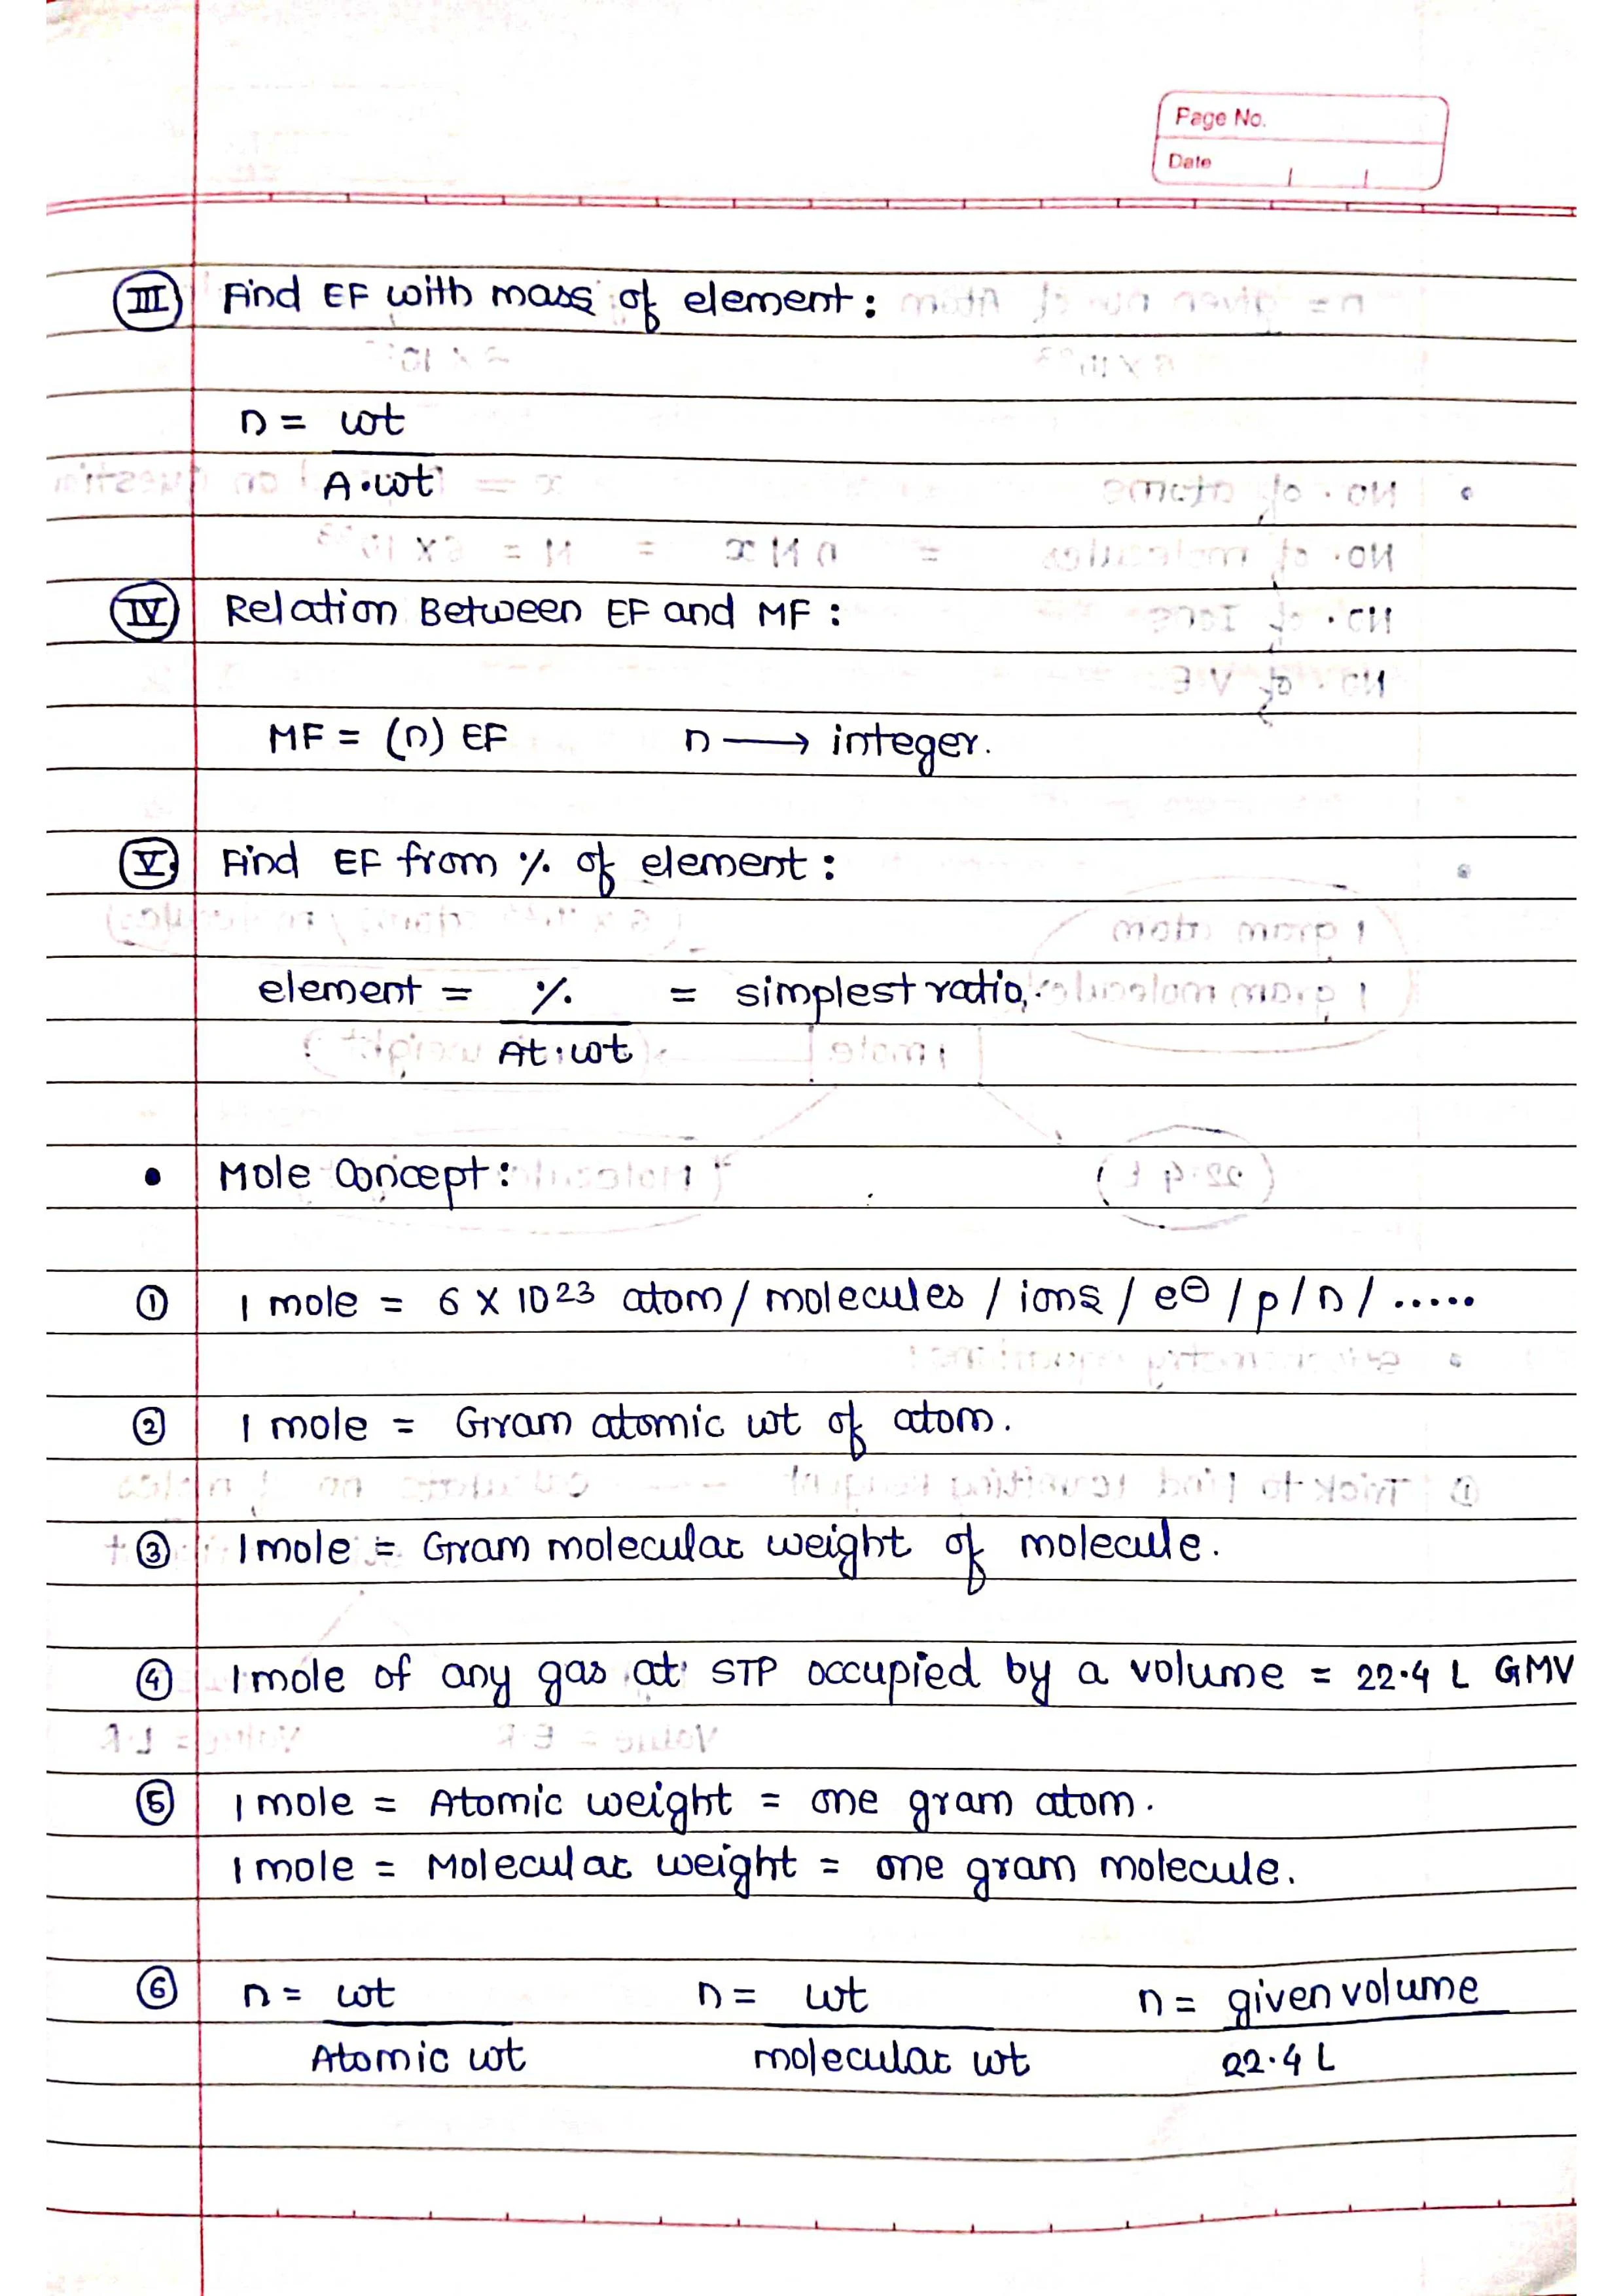 Page No.
Date
III Find EF with mass of element :
n = wt
A.wt
IV Relation Between EF and MF :
MF = (n) EF n → integer.
V. Find EF from % of element :
element = % = simplest ratio.
At.wt
• Mole Concept :
① 1 mole = 6 X 10²³ atom / molecules / ions / e⊖ / p / n / .....
② 1 mole = Gram atomic wt of atom.
③ 1 mole = Gram molecular weight of molecule.
④ 1 mole of any gas at STP occupied by a volume = 22.4 L GMV
⑤ 1 mole = Atomic weight = one gram atom.
1 mole = Molecular weight = one gram molecule.
⑥ n = wt n = wt n = given volume
Atomic wt molecular wt 22.4 L